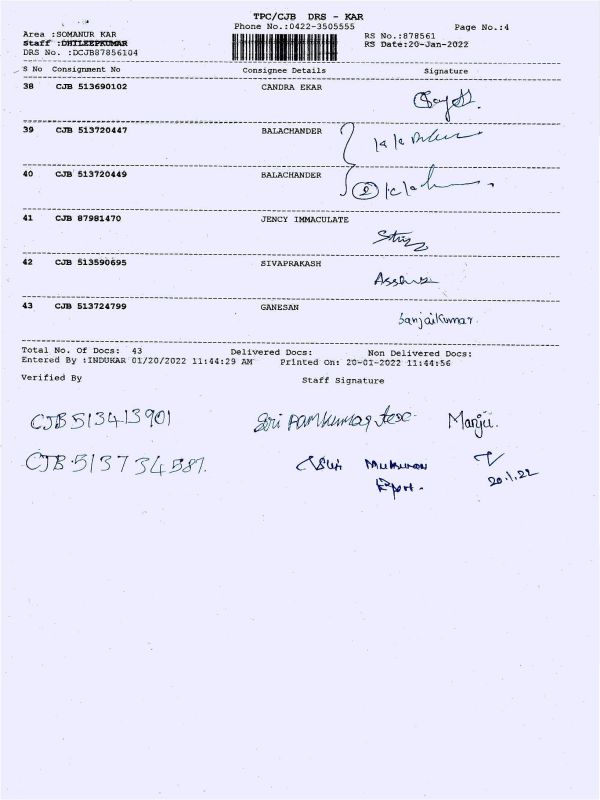 TPC/CJB DRS - KAR
Phone No.:0422-3505555 Page No.:4
Area :SOMANUR KAR RS No.:878561
Staff :DHILEEPKUMAR RS Date:20-Jan-2022
DRS No. :DCJB87856104
S No Consignment No Consignee Details Signature
38 CJB 513690102 CANDRA EKAR
39 CJB 513720447 BALACHANDER
40 CJB 513720449 BALACHANDER
41 CJB 87981470 JENCY IMMACULATE
42 CJB 513590695 SIVAPRAKASH
43 CJB 513724799 GANESAN
Sanjaikumar.
Total No. Of Docs: 43 Delivered Docs: Non Delivered Docs:
Entered By :INDUKAR 01/20/2022 11:44:29 AM Printed On: 20-01-2022 11:44:56
Verified By Staff Signature
CJB 513413901 Sri Manju.
CJB 513734587. 20.1.22